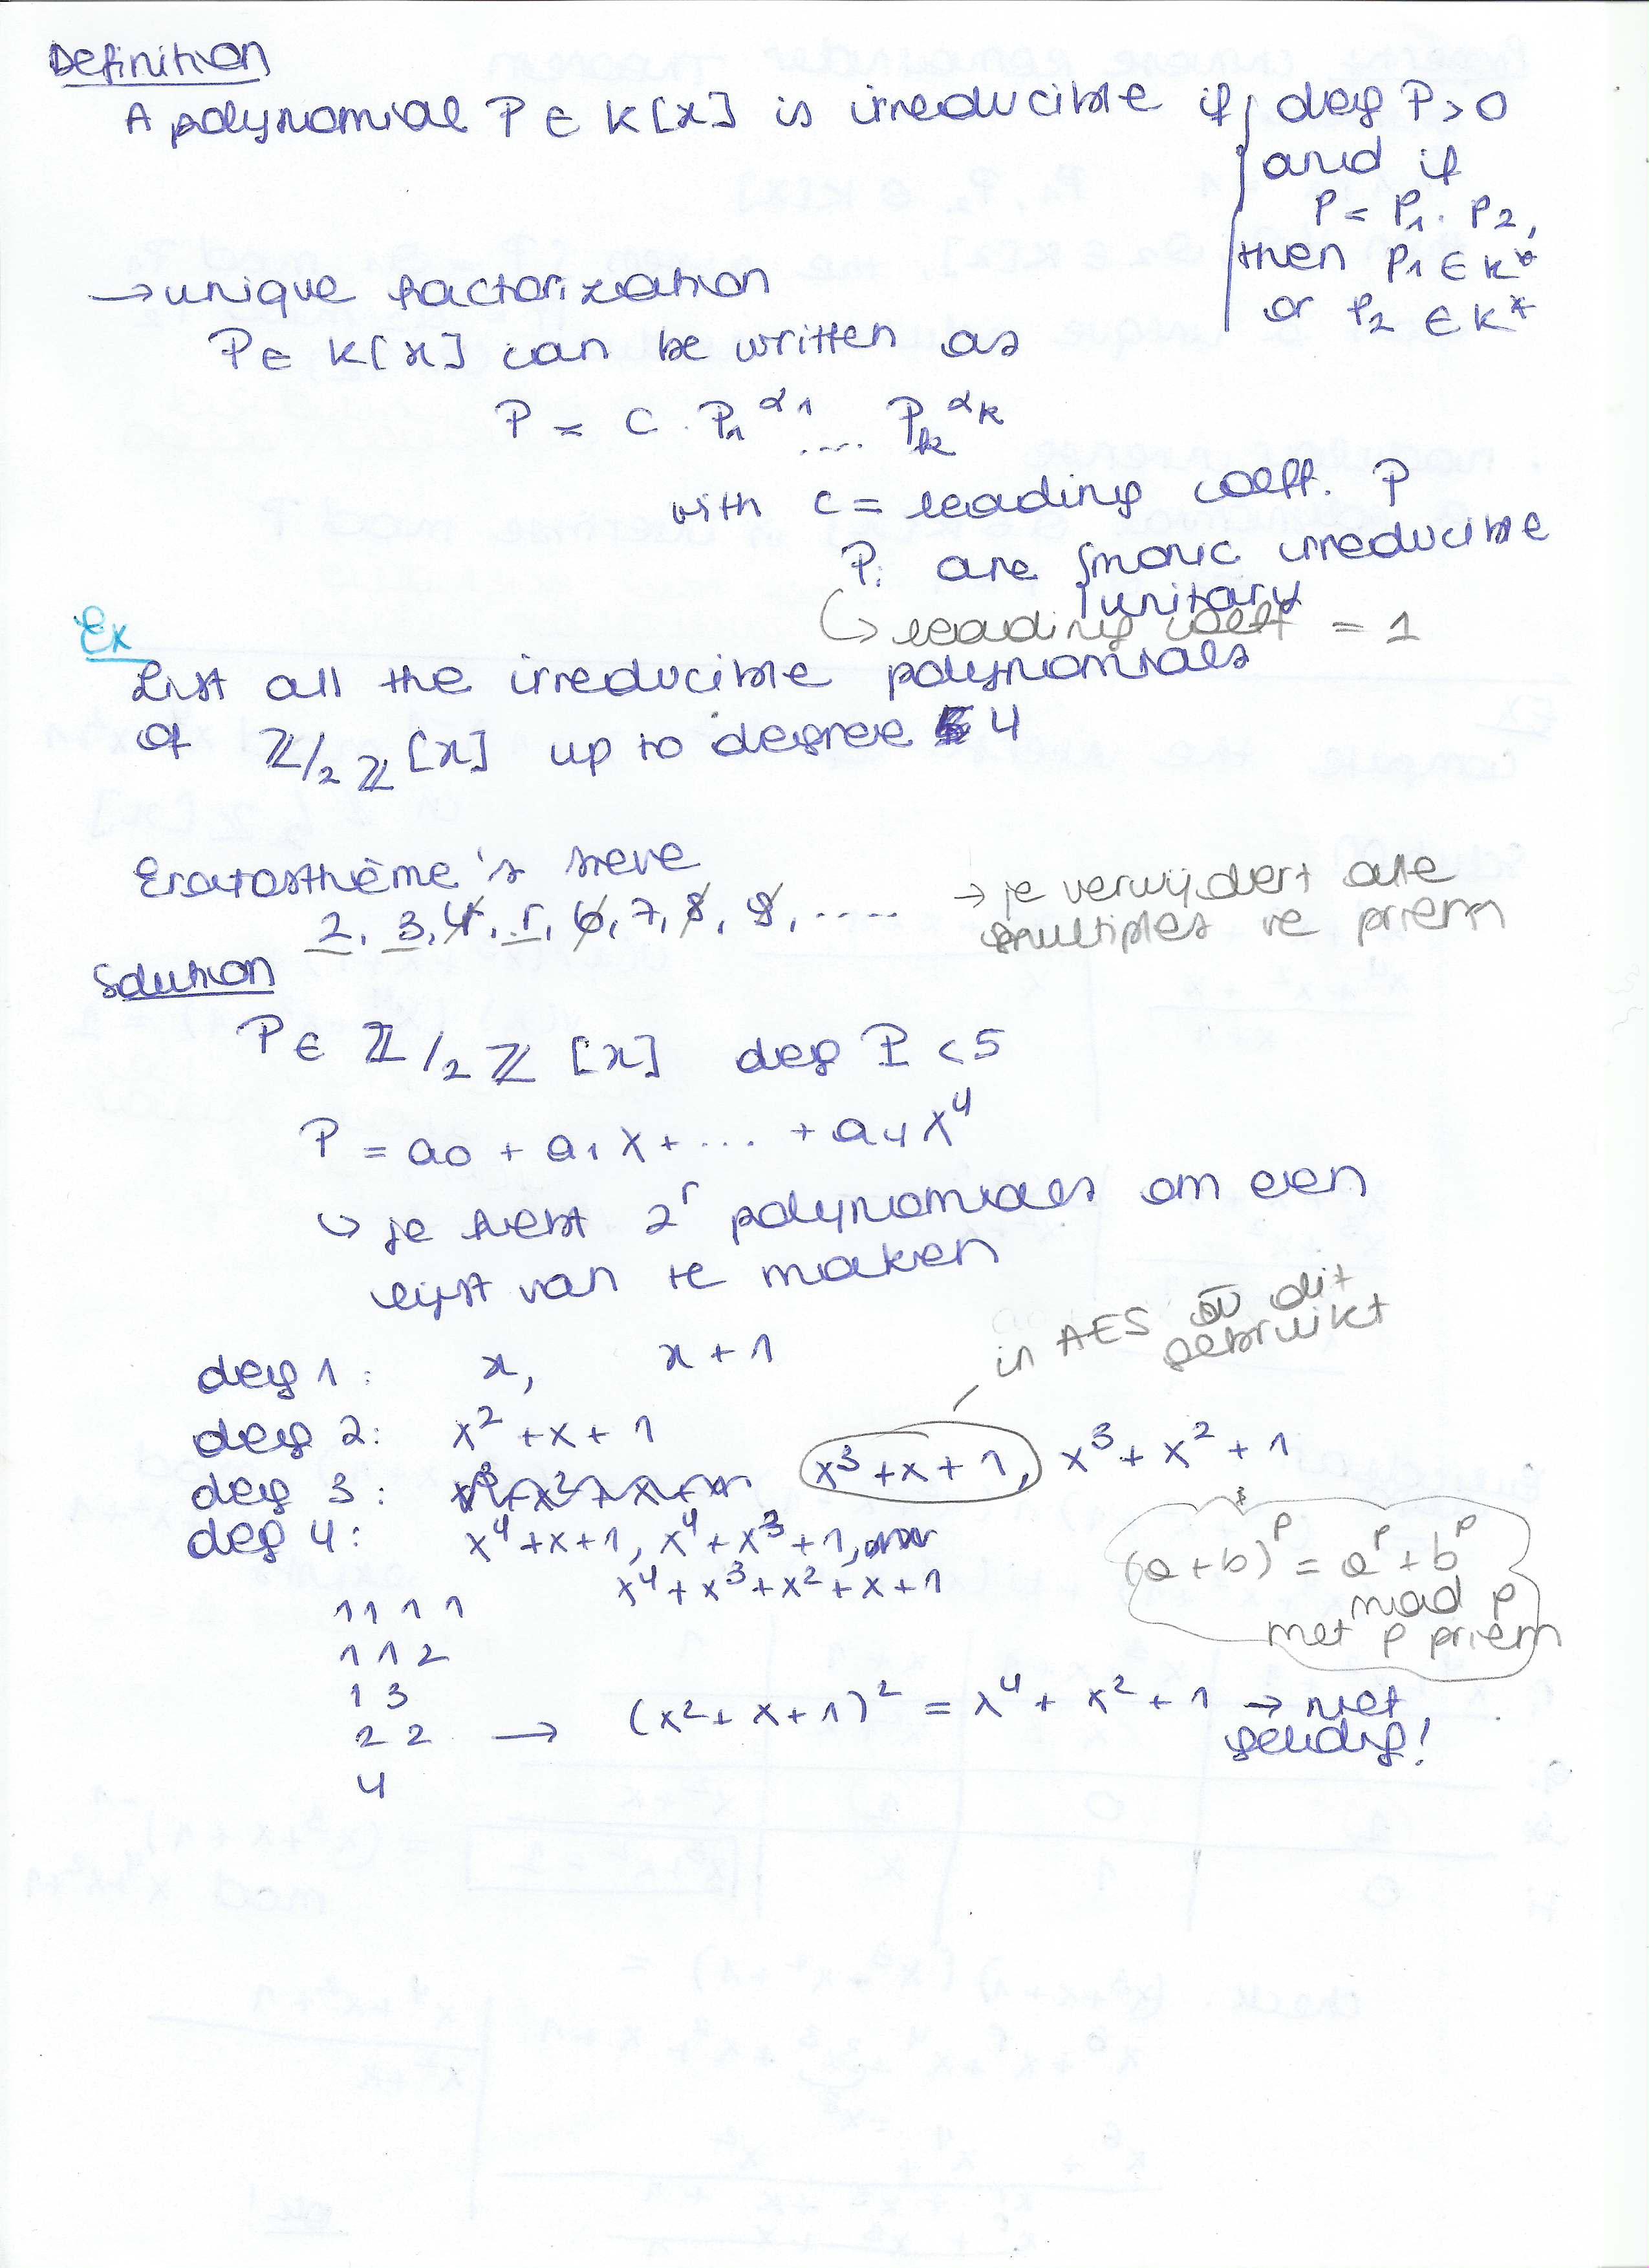 Definition
A polynomial P ∈ K[x] is irreducible if deg P > 0
and if
P = P₁ . P₂,
then P₁ ∈ K*
or P₂ ∈ K*
→ unique factorization
P ∈ K[x] can be written as
P = C . P₁^α₁ .... P_k^α_k
with C = leading coeff. P
Pᵢ are monic irreducible
unitary
↳ leading coeff = 1
Ex
List all the irreducible polynomials
of ℤ/2ℤ [x] up to degree 4
Eratosthème's sieve
2, 3, 4, 5, 6, 7, 8, 9, ....
→ je verwijdert alle
multiples ve priem
Solution
P ∈ ℤ/2ℤ [x] deg P < 5
P = a₀ + a₁x + ... + a₄x⁴
↳ je hebt 2⁵ polynomials om een
lijst van te maken
in AES dit
gebruikt
deg 1: x, x + 1
deg 2: x² + x + 1
deg 3: x³ + x + 1, x³ + x² + 1
deg 4: x⁴ + x + 1, x⁴ + x³ + 1,
x⁴ + x³ + x² + x + 1
(a + b)^p = a^p + b^p
mod p
met p priem
1 1 1 1
1 1 2
1 3
2 2 → (x² + x + 1)² = x⁴ + x² + 1 → niet
geldig!
4